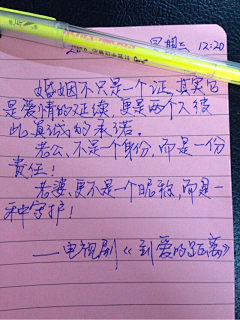 星期三 12:20
婚姻不只是一个证,其实它
是爱情的延续,更是两个人彼
此真诚的承诺。
老公、不是个身份,而是一份
责任!
老婆更不是一个眼称,而是一
种守护!
——电视剧《到爱的距离》